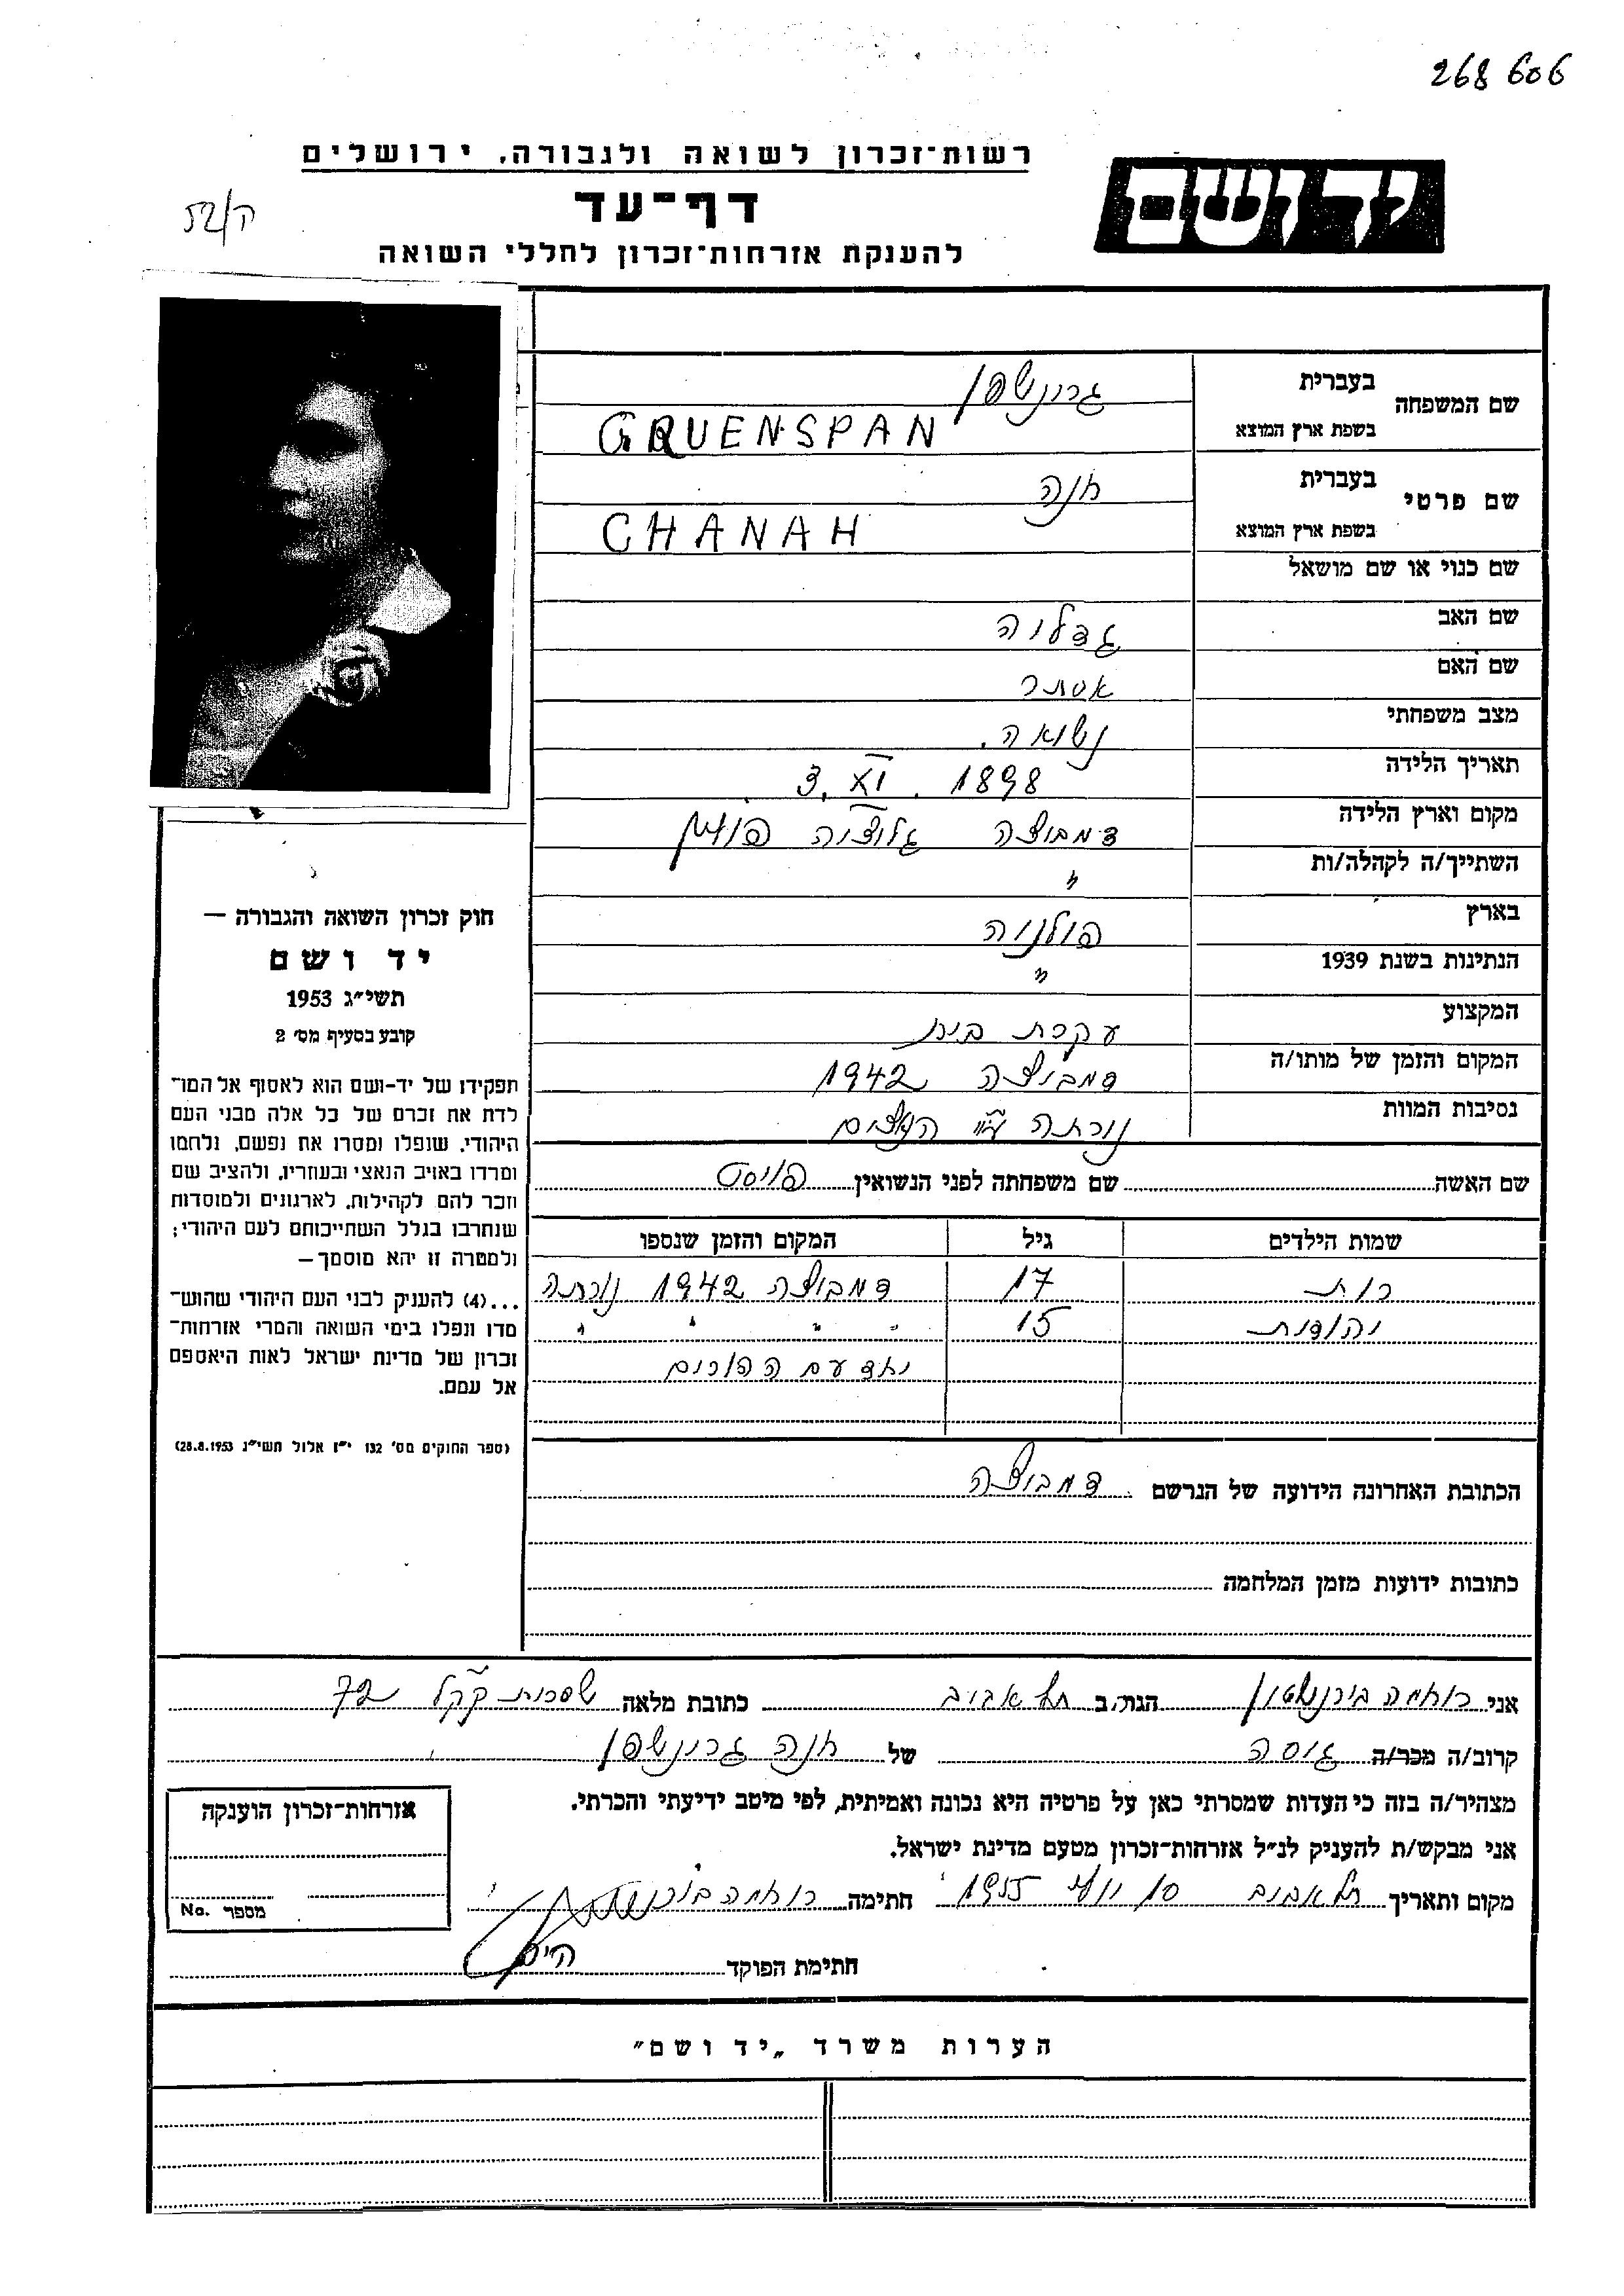 268 606
רשות־זכרון לשואה ולגבורה, ירושלים
יד ושם
דף־עד
ה/52
להענקת אזרחות־זכרון לחללי השואה
שם המשפחה בעברית גרונשפן
בשפת ארץ המוצא GRUENSPAN
שם פרטי בעברית חנה
בשפת ארץ המוצא CHANAH
שם כנוי או שם מושאל
שם האב גדליה
שם האם אסתר
מצב משפחתי נשואה.
תאריך הלידה 3. XI. 1898
מקום וארץ הלידה דמביצה גליציה
השתייך/ה לקהלה/ות "
בארץ פולניה
הנתינות בשנת 1939 "
המקצוע עקרת בית
המקום והזמן של מותו/ה דמביצה 1942
נסיבות המוות נורתה ע״י הנאצים
שם האשה שם משפחתה לפני הנשואין
שמות הילדים גיל המקום והזמן שנספו
רות 17 דמביצה 1942 נורתה
יהודית 15 " " " "
יחד עם ההורים
הכתובת האחרונה הידועה של הנרשם דמביצה
כתובות ידועות מזמן המלחמה
חוק זכרון השואה והגבורה —
יד ושם
תשי״ג 1953
קובע בסעיף מס׳ 2
תפקידו של יד-ושם הוא לאסוף אל המו־
לדת את זכרם של כל אלה מבני העם
היהודי, שנפלו ומסרו את נפשם, נלחמו
ומרדו באויב הנאצי ובעוזריו, ולהציב שם
וזכר להם לקהילות, לארגונים ולמוסדות
שנחרבו בגלל השתייכותם לעם היהודי;
ולמטרה זו יהא מוסמך —
...(4) להעניק לבני העם היהודי שהוש־
מדו ונפלו בימי השואה והמרי אזרחות־
זכרון של מדינת ישראל לאות היאספם
אל עמם.
(ספר החוקים מס׳ 132 י״ז אלול תשי״ג 28.8.1953)
אני רוחמה בורנשטין הגר/ה ב תל אביב כתובת מלאה שדרות קק״ל 72
קרוב/ה מכר/ה גיסה של חנה גרונשפן
מצהיר/ה בזה כי העדות שמסרתי כאן על פרטיה היא נכונה ואמיתית, לפי מיטב ידיעתי והכרתי.
אני מבקש/ת להעניק לנ״ל אזרחות־זכרון מטעם מדינת ישראל.
מקום ותאריך תל אביב 10 יולי 1955 חתימה רוחמה בורנשטין
חתימת הפוקד
אזרחות־זכרון הוענקה
מספר No.
הערות משרד „יד ושם״